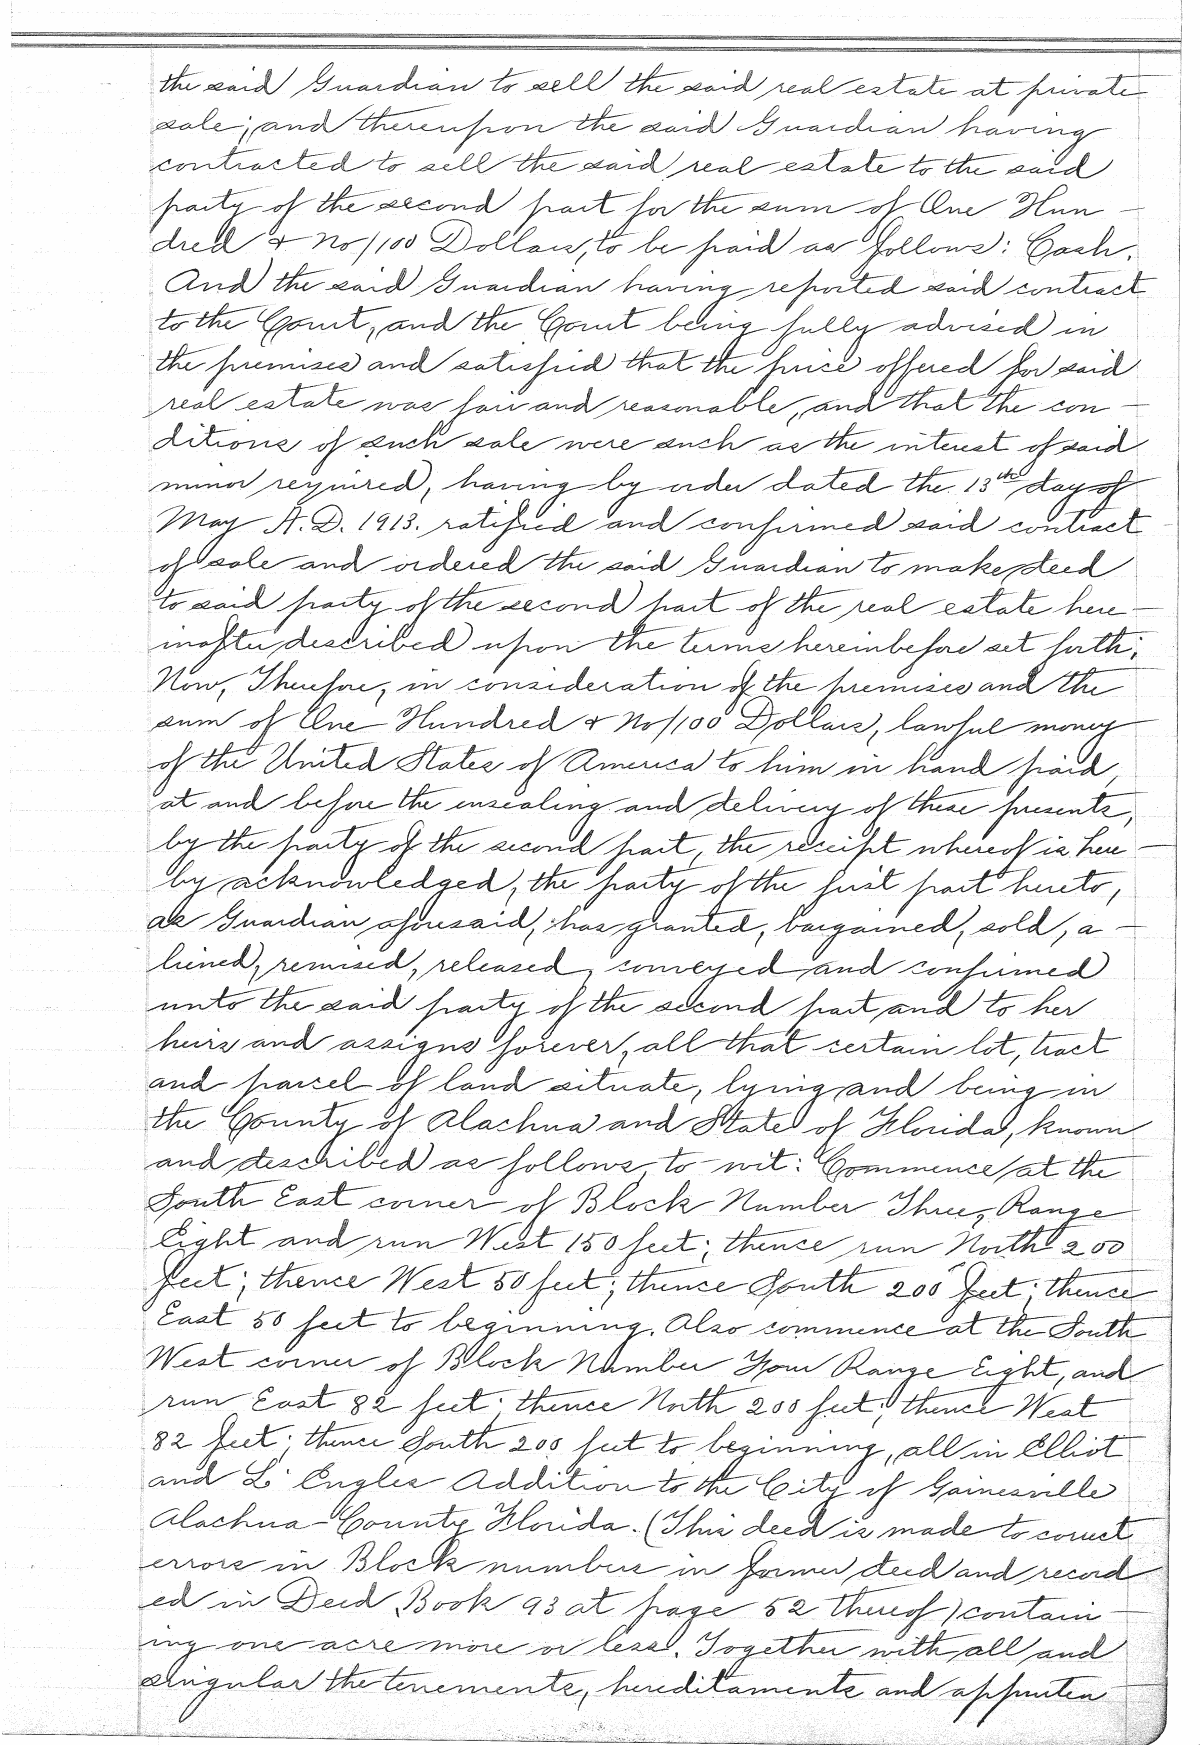 the said Guardian to sell the said real estate at private
sale; and thereupon the said Guardian having
contracted to sell the said real estate to the said
party of the second part for the sum of One Hun-
dred & No/100 Dollars, to be paid as follows: Cash.
And the said Guardian having reported said contract
to the Court, and the Court being fully advised in
the premises and satisfied that the price offered for said
real estate was fair and reasonable, and that the con-
ditions of such sale were such as the interest of said
minor required, having by order dated the 13th day of
May A.D. 1913. ratified and confirmed said contract
of sale and ordered the said Guardian to make deed
to said party of the second part of the real estate here-
inafter described upon the terms hereinbefore set forth;
Now, Therefore, in consideration of the premises and the
sum of One Hundred & No/100 Dollars, lawful money
of the United States of America to him in hand paid,
at and before the ensealing and delivery of these presents,
by the party of the second part, the receipt whereof is here-
by acknowledged, the party of the first part hereto,
as Guardian aforesaid, has granted, bargained, sold, a-
liened, remised, released, conveyed and confirmed
unto the said party of the second part, and to her
heirs and assigns forever, all that certain lot, tract
and parcel of land situate, lying and being in
the County of Alachua and State of Florida, known
and described as follows, to wit: Commence at the
South East corner of Block Number Three, Range
Eight and run West 150 feet; thence run North 200
feet; thence West 50 feet; thence South 200 feet; thence
East 50 feet to beginning. Also commence at the South
West corner of Block Number Four Range Eight, and
run East 82 feet; thence North 200 feet; thence West
82 feet; thence South 200 feet to beginning, all in Elliot
and L' Engles Addition to the City of Gainesville
Alachua County Florida. (This deed is made to correct
errors in Block numbers in former deed and record
ed in Deed Book 93 at page 52 thereof) contain-
ing one acre more or less. Together with all and
singular the tenements, hereditaments and appurten